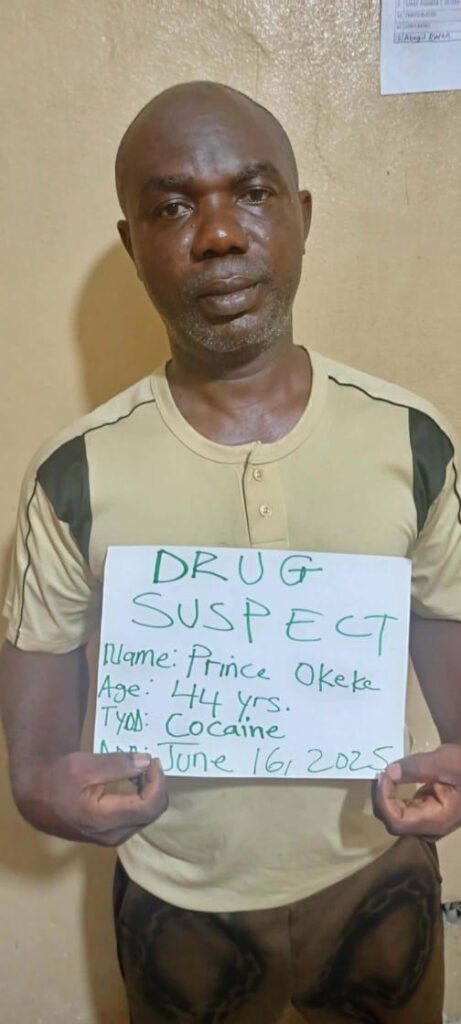 DRUG
SUSPECT
Name: Prince Okeke
Age: 44 yrs.
TyDD: Cocaine
June 16, 2025